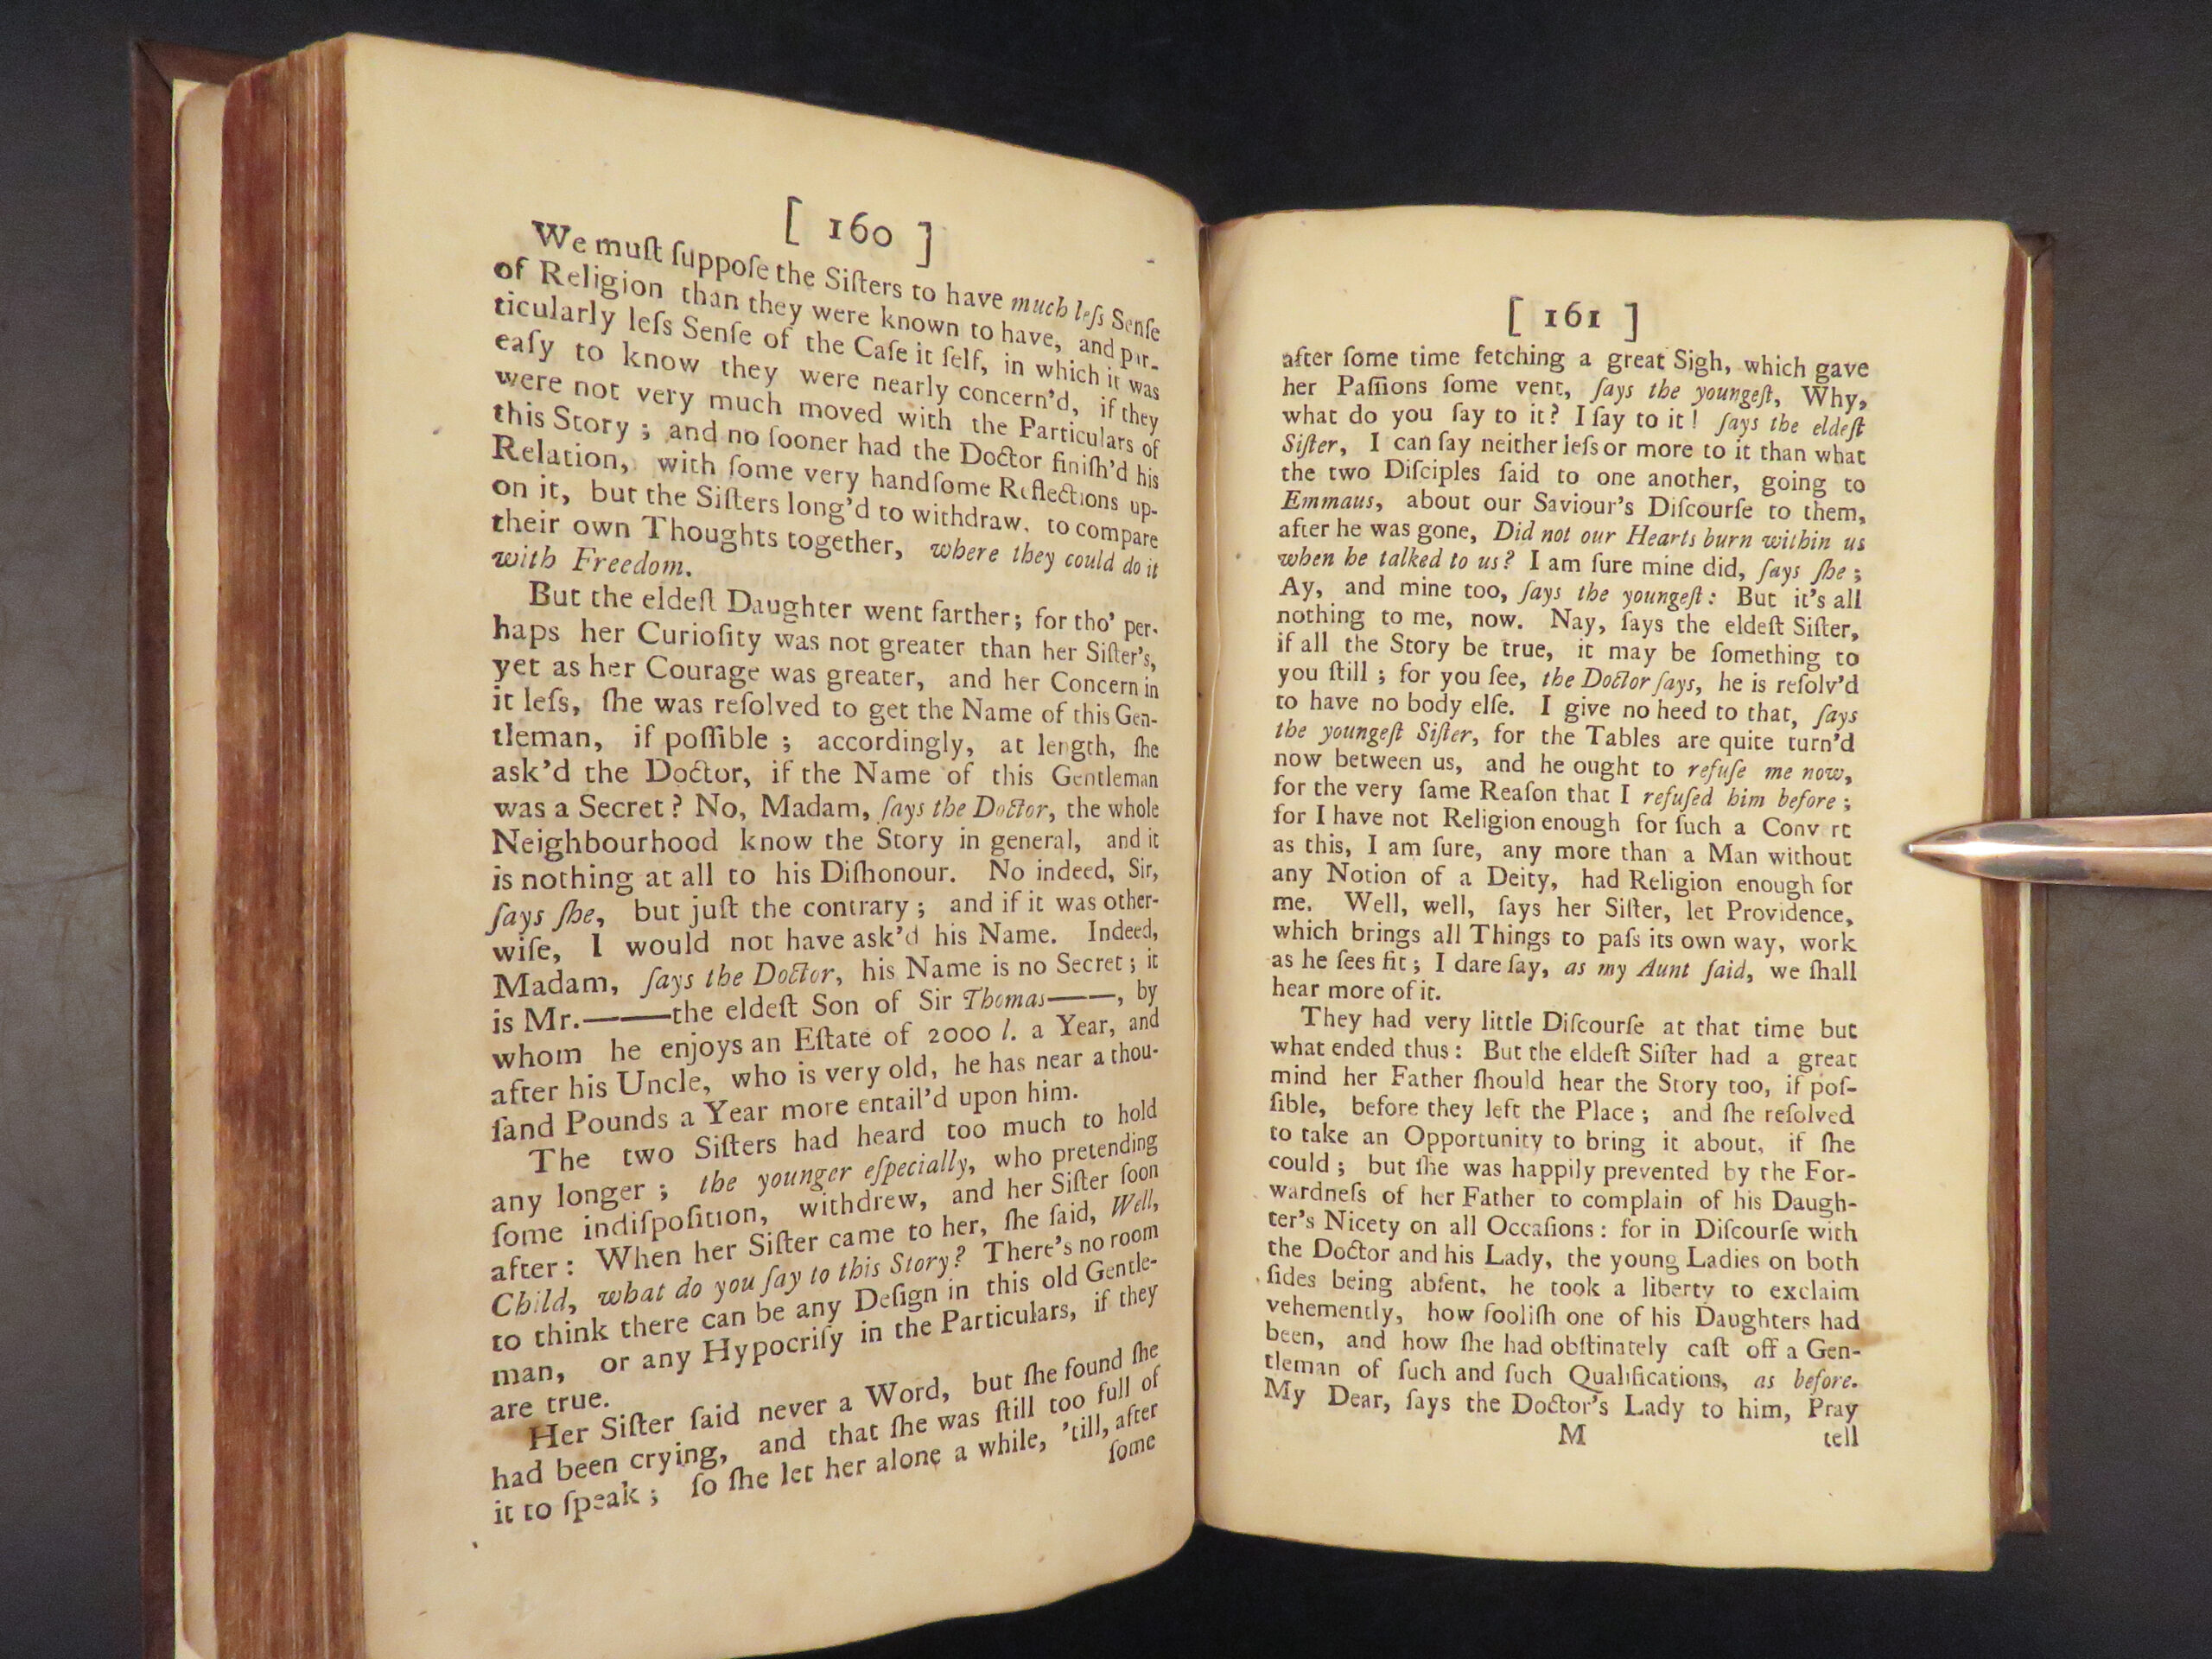 [ 160 ]
We muſt ſuppoſe the Siſters to have much leſs Senſe
of Religion than they were known to have, and par-
ticularly leſs Senſe of the Caſe it ſelf, in which it was
eaſy to know they were nearly concern'd, if they
were not very much moved with the Particulars of
this Story ; and no ſooner had the Doctor finiſh'd his
Relation, with ſome very handſome Reflections up-
on it, but the Siſters long'd to withdraw, to compare
their own Thoughts together, where they could do it
with Freedom.
But the eldeſt Daughter went farther; for tho' per-
haps her Curioſity was not greater than her Siſter's,
yet as her Courage was greater, and her Concern in
it leſs, ſhe was reſolved to get the Name of this Gen-
tleman, if poſſible ; accordingly, at length, ſhe
ask'd the Doctor, if the Name of this Gentleman
was a Secret? No, Madam, ſays the Doctor, the whole
Neighbourhood know the Story in general, and it
is nothing at all to his Diſhonour. No indeed, Sir,
ſays ſhe, but juſt the contrary ; and if it was other-
wiſe, I would not have ask'd his Name. Indeed,
Madam, ſays the Doctor, his Name is no Secret ; it
is Mr.———the eldeſt Son of Sir Thomas——, by
whom he enjoys an Eſtate of 2000 l. a Year, and
after his Uncle, who is very old, he has near a thou-
ſand Pounds a Year more entail'd upon him.
The two Siſters had heard too much to hold
any longer ; the younger eſpecially, who pretending
ſome indiſpoſition, withdrew, and her Siſter ſoon
after: When her Siſter came to her, ſhe ſaid, Well,
Child, what do you ſay to this Story? There's no room
to think there can be any Deſign in this old Gentle-
man, or any Hypocriſy in the Particulars, if they
are true.
Her Siſter ſaid never a Word, but ſhe found ſhe
had been crying, and that ſhe was ſtill too full of
it to ſpeak ; ſo ſhe let her alone a while, 'till, after
ſome
[ 161 ]
after ſome time fetching a great Sigh, which gave
her Paſſions ſome vent, ſays the youngeſt, Why,
what do you ſay to it? I ſay to it! ſays the eldeſt
Siſter, I can ſay neither leſs or more to it than what
the two Diſciples ſaid to one another, going to
Emmaus, about our Saviour's Diſcourſe to them,
after he was gone, Did not our Hearts burn within us
when he talked to us? I am ſure mine did, ſays ſhe ;
Ay, and mine too, ſays the youngeſt: But it's all
nothing to me, now. Nay, ſays the eldeſt Siſter,
if all the Story be true, it may be ſomething to
you ſtill ; for you ſee, the Doctor ſays, he is reſolv'd
to have no body elſe. I give no heed to that, ſays
the youngeſt Siſter, for the Tables are quite turn'd
now between us, and he ought to refuſe me now,
for the very ſame Reaſon that I refuſed him before ;
for I have not Religion enough for ſuch a Conv rt
as this, I am ſure, any more than a Man without
any Notion of a Deity, had Religion enough for
me. Well, well, ſays her Siſter, let Providence,
which brings all Things to paſs its own way, work
as he ſees fit ; I dare ſay, as my Aunt ſaid, we ſhall
hear more of it.
They had very little Diſcourſe at that time but
what ended thus: But the eldeſt Siſter had a great
mind her Father ſhould hear the Story too, if poſ-
ſible, before they left the Place ; and ſhe reſolved
to take an Opportunity to bring it about, if ſhe
could ; but ſhe was happily prevented by the For-
wardneſs of her Father to complain of his Daugh-
ter's Nicety on all Occaſions: for in Diſcourſe with
the Doctor and his Lady, the young Ladies on both
ſides being abſent, he took a liberty to exclaim
vehemently, how fooliſh one of his Daughters had
been, and how ſhe had obſtinately caſt off a Gen-
tleman of ſuch and ſuch Qualifications, as before.
My Dear, ſays the Doctor's Lady to him, Pray
M tell